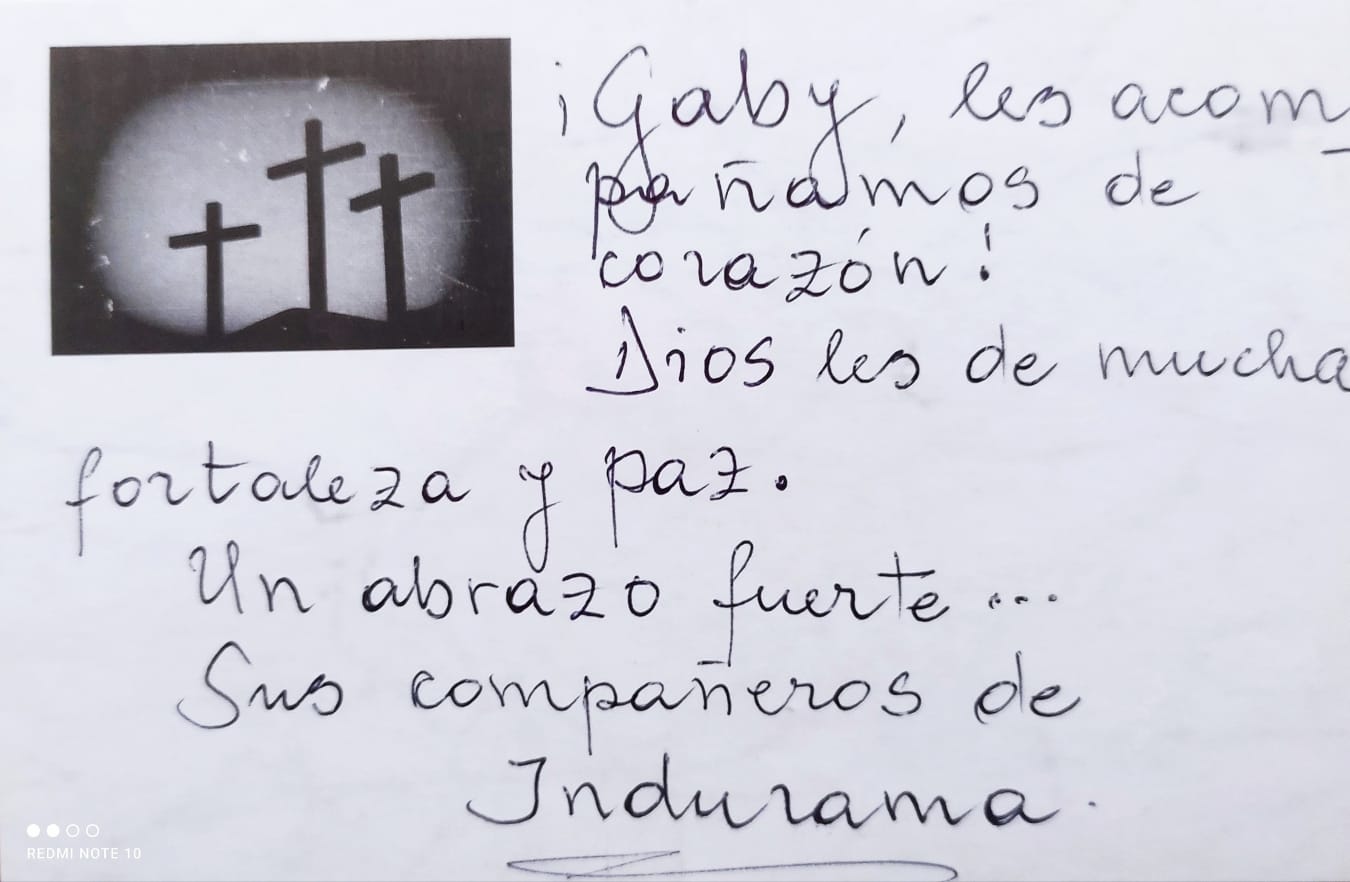 ¡Gaby, les acom-
pañamos de
corazón!
Dios les de mucha
fortaleza y paz.
Un abrazo fuerte...
Sus compañeros de
Indurama.
REDMI NOTE 10